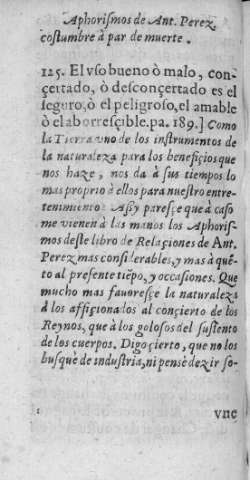 Aphorismos de Ant. Perez,
costumbre à par de muerte.
125. El vso bueno ò malo, con-
çertado, ò desconçertado es el
seguro, ò el peligroso, el amable
ò el aborresçible. pa. 189.] Como
la Tierra vno de los instrumentos de
la naturaleza para los benefiçios que
nos haze, nos da à sus tiempos lo
mas proprio à ellos para nuestro entre-
tenimiento: Assy paresçe que à caso
me vienen à las manos los Aphoris-
mos deste libro de Relaçiones de Ant.
Perez mas considerables, y mas à quẽ-
to al presente tiẽpo, y occasiones. Que
mucho mas fauoresçe la naturaleza
à los affiçionados al conçierto de los
Reynos, que à los golosos del sustento
de los cuerpos. Digo çierto, que no los
busquè de industria, ni pensè dezir so-
vne